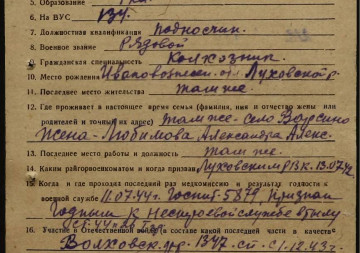 5. Образование
6. На ВУС 134.
7. Должностная квалификация подносчик.
8. Военное звание Рядовой
9. Гражданская специальность Колхозник
10. Место рождения Ивановозnes. обл Луховской р.
11. Последнее место жительства там же.
12. Где проживает в настоящее время семья (фамилия, имя и отчество жены или
родителей и точный их адрес) там же село
Жена - Любимова Александра Алекс.
13. Последнее место работы и должность там же.
14. Каким райгорвоенкоматом и когда призван Луховским РВК.
15. Когда и где проходил последний раз медкомиссию и результат годности к
военной службе 11.07.44г. Госпит. 5877, признан
Годным к нестроевой службе в тылу
16. Участие в Отечественной войне (в составе какой последней части в качестве
Волховск. фр. 1347 сп. с 1.12.43г.